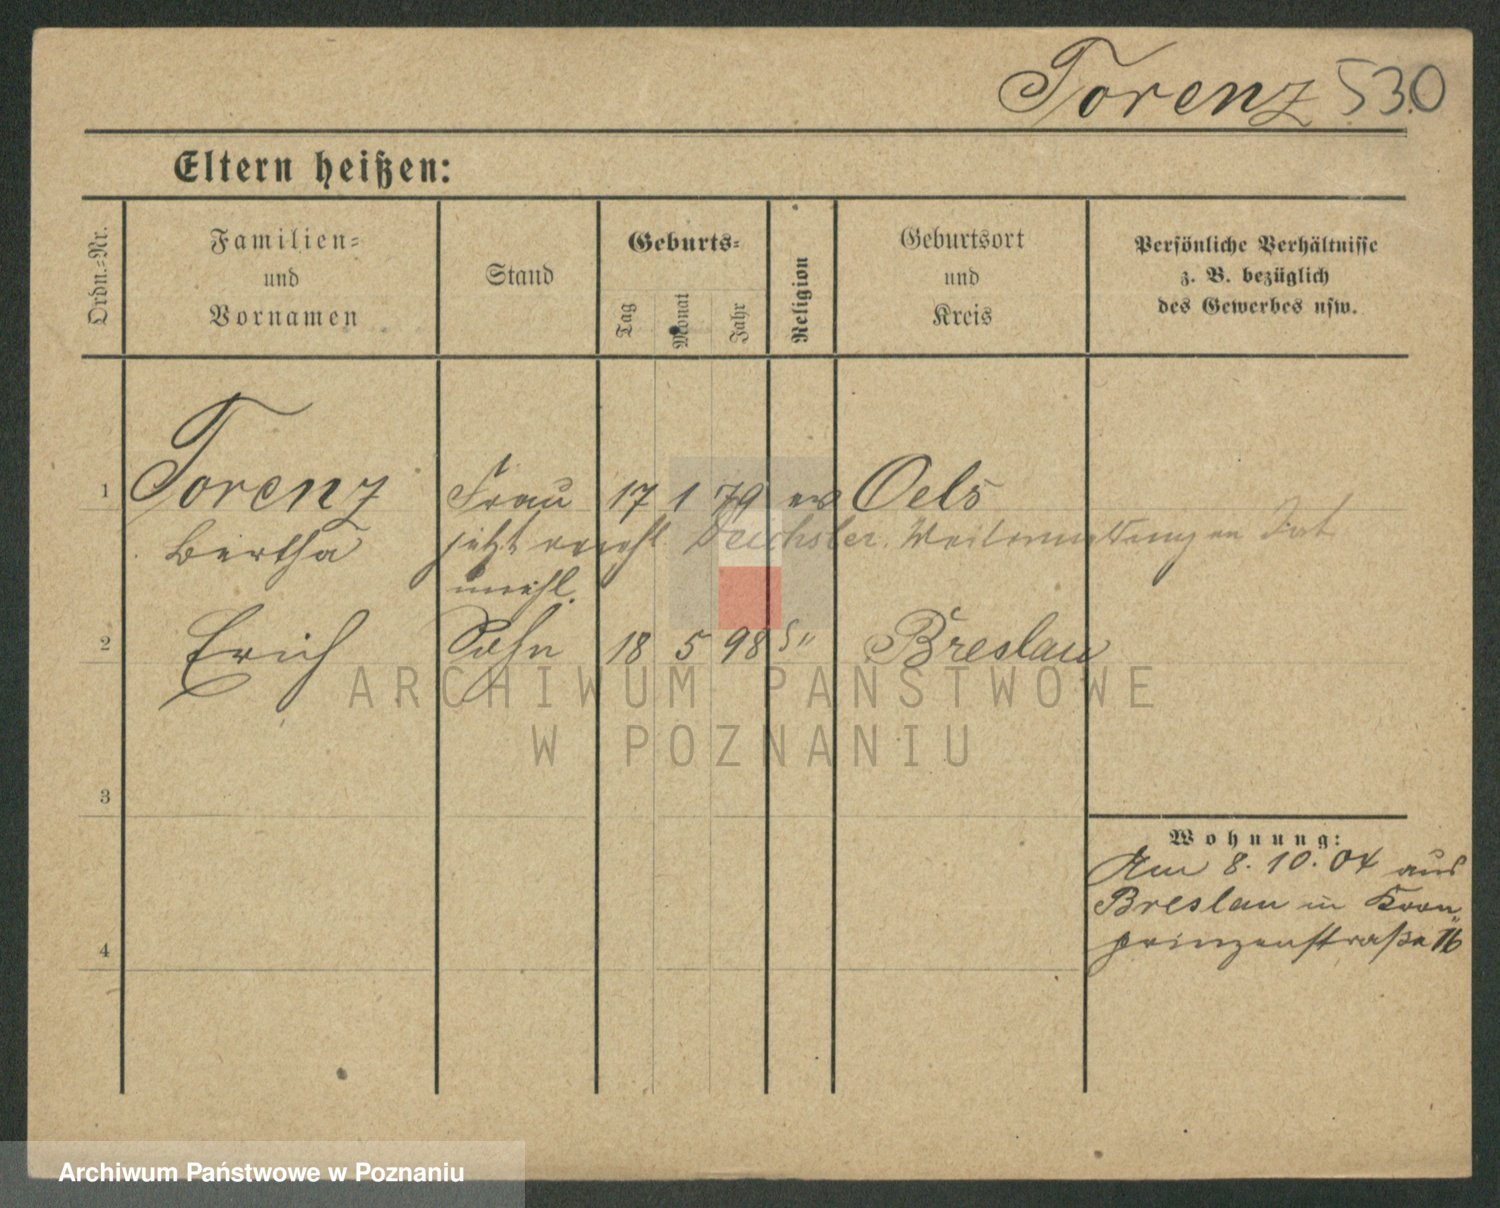 Torenz 530
Eltern heißen:
Ordn.-Nr.
Familien-
und
Vornamen
Stand
Geburts-
Tag
Monat
Jahr
Religion
Geburtsort
und
Kreis
Persönliche Verhältnisse
z. B. bezüglich
des Gewerbes usw.
1 Torenz Frau 17 1 79 ev Oels
Bertha jetzt verehl. Deichsler.
unehl.
2 Erich Sohn 18 5 98 " Breslau
3
Wohnung:
Am 8. 10. 04 aus
Breslau in Kron-
prinzenstraße 16
4
ARCHIWUM PAŃSTWOWE
W POZNANIU
Archiwum Państwowe w Poznaniu